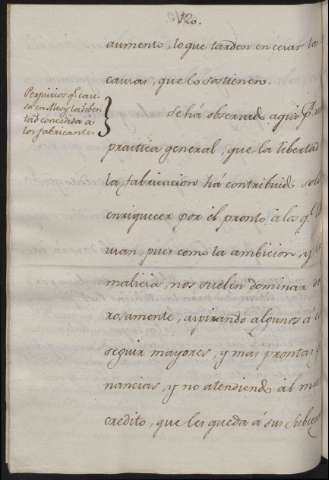 V20.
aumento, lo que tarden en cesar la
causas, que lo sostienen.
Perjuicios qe cau-
sa en Alcoy la liber-
tad concedida à
los fabricantes
Se há observado aqui pr
practica general, que la libertad
la fabricacion há contribuido solo
enriquecer por el pronto á los qe
usan, pues como la ambicion, y
malicia, nos suelen dominar
rosamente, aspirando algunos á
seguir mayores, y mas prontas
nancias, y no atendiendo al m
credito, que les queda á sus Subces